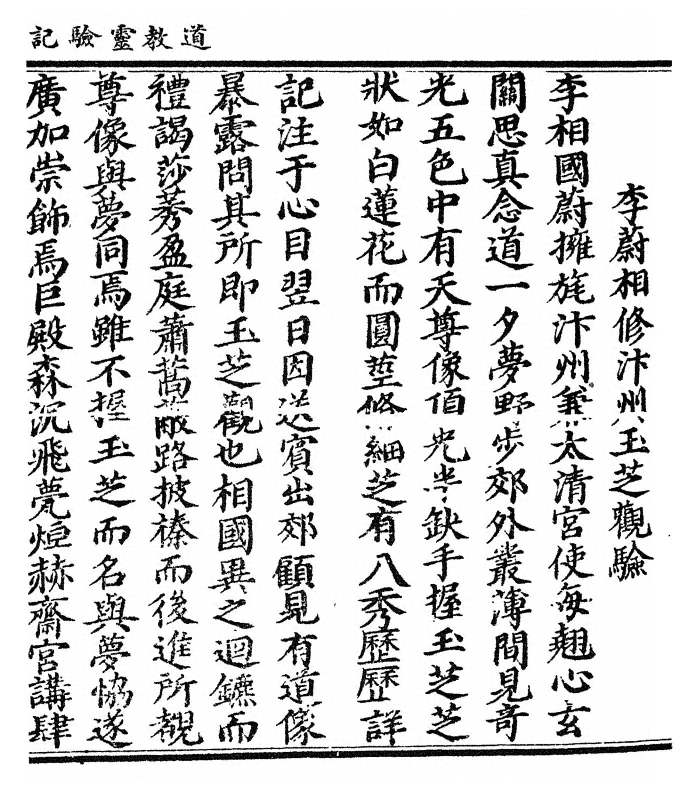 道教靈驗記
李蔚相修汴州玉芝觀驗
李相國蔚擁旄汴州兼太清宮使每翹心玄
關思真念道一夕夢野步郊外叢薄間見奇
光五色中有天尊像頂光半缺手握玉芝芝
狀如白蓮花而圓莖修細芝有八秀歷歷詳
記注于心目翌日因送賓出郊顧見有道像
暴露問其所即玉芝觀也相國異之迴鑣而
禮謁莎莠盈庭蕭蒿蔽路披榛而後進所覩
尊像與夢同焉雖不握玉芝而名與夢恊遂
廣加崇飾焉巨殿森沉飛甍烜赫齋宮講肆